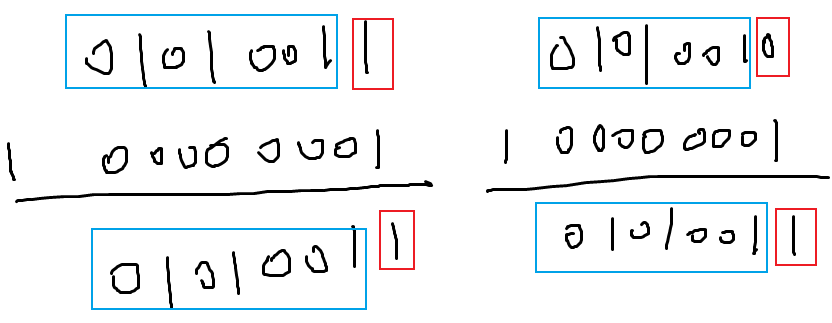 0101 0011
1 0000 0001
0101 0011
0101 0010
1 0000 0001
0101 0011